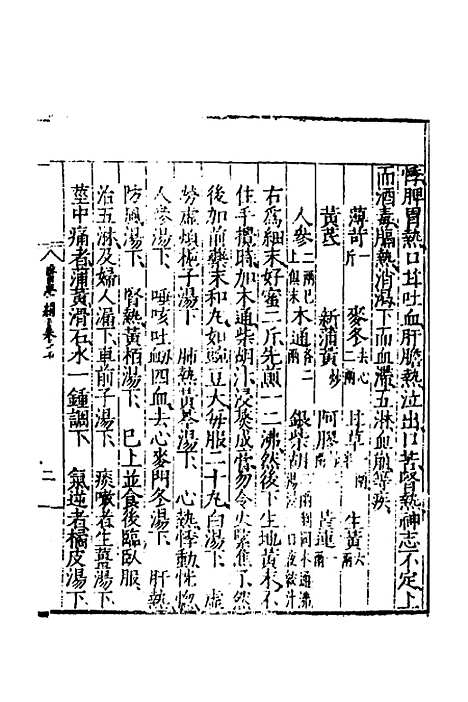 悸脾胃熱口甘吐血肝膽熱泣出口苦腎熱神志不定上
而酒毒膈熱消渴下而血滯五淋血崩等疾
薄荷一斤 麥冬去心二兩 甘草 生黃六
黃芪 新蒲黃炒 阿膠 黃連兩
人參二兩已上俱末 木通各二兩 銀柴胡
右爲細末好蜜二斤先煎一二沸然後下生地黃末不
住手攪時加木通柴胡汁浸熬成膏勿令火緊焦了然
後加前藥末和丸如豌豆大每服二十丸白湯下 虛
勞虛煩梔子湯下 肺熱黃芩湯下 心熱悸動恍惚
人參湯下 唾咳吐衄四血去心麥門冬湯下 肝熱
防風湯下 腎熱黃栢湯下 已上並食後臨臥服
治五淋及婦人漏下車前子湯下 痰嗽者生薑湯下
莖中痛者蒲黃滑石水一鍾調下 氣逆者橘皮湯下
二